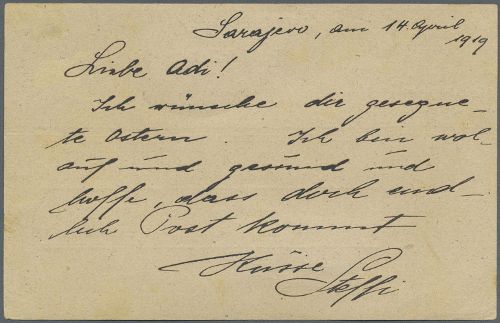 Sarajevo, am 14. April
1919
Liebe Adi!
Ich wünsche dir gesegne-
te Ostern. Ich bin wol-
auf und gesund und
hoffe, dass doch end-
lich Post kommt
Küsse
Steffi